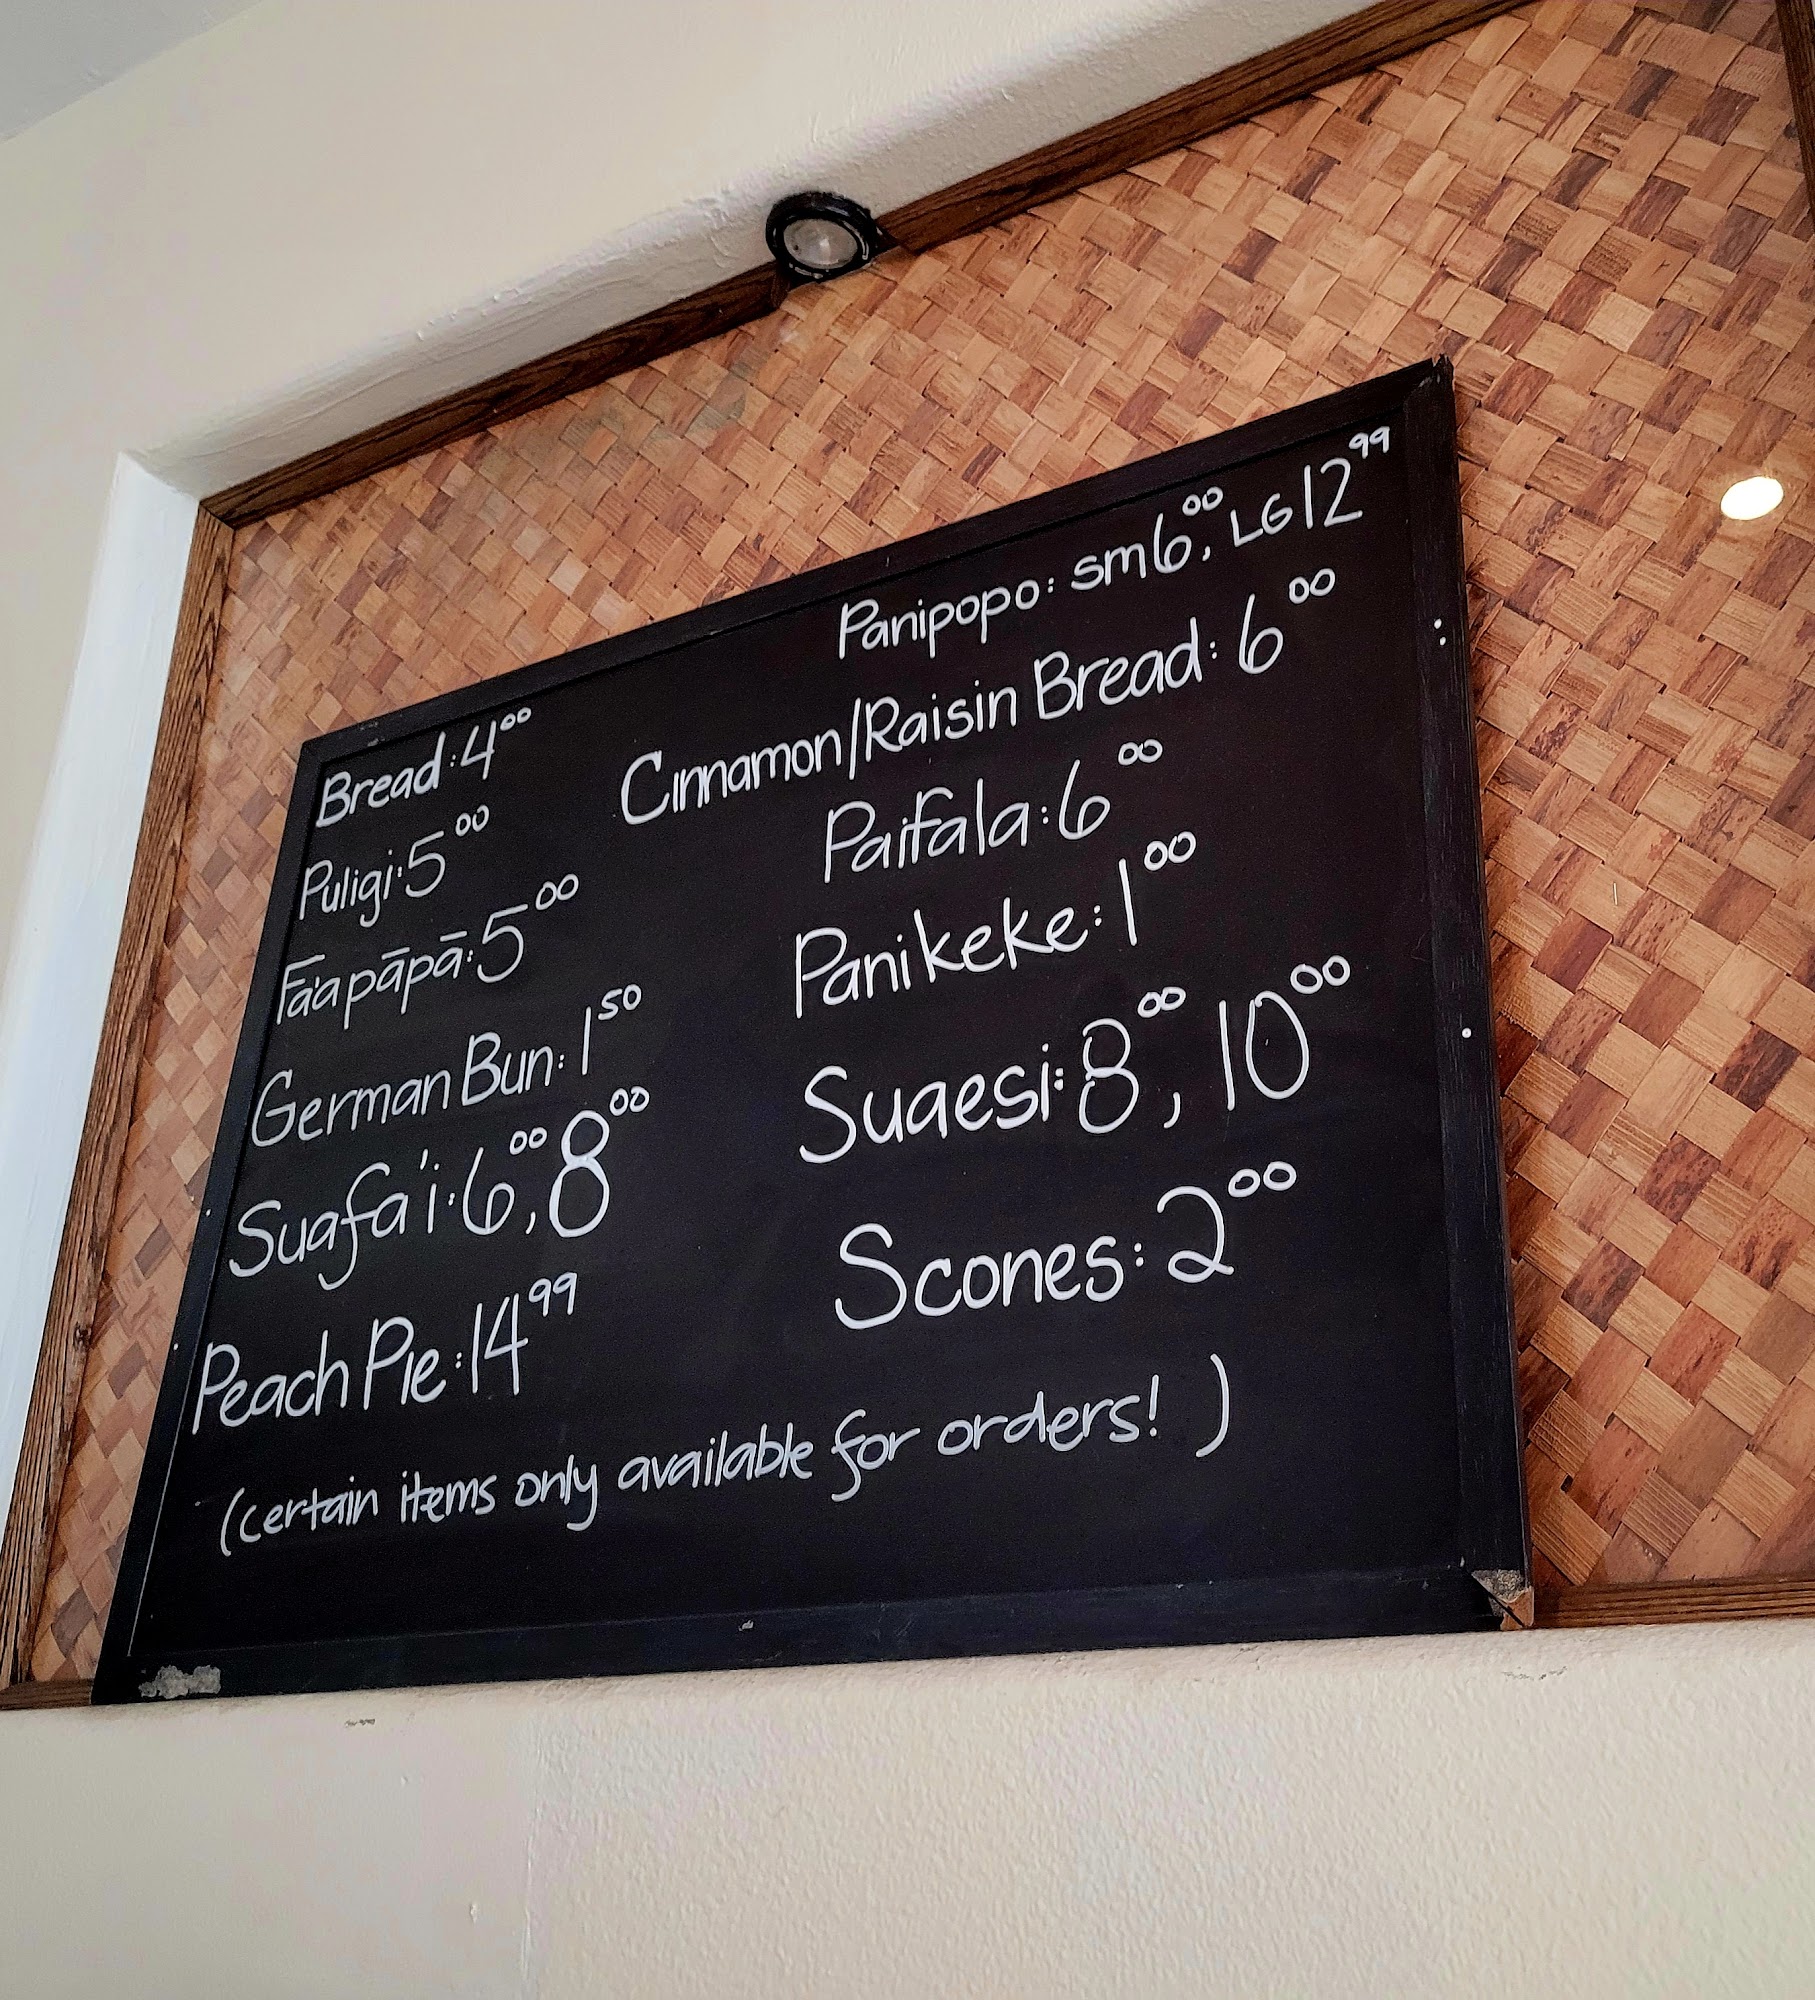 Bread: 4.00
Puligi: 5.00
Fa'apāpā: 5.00
German Bun: 1.50
Suafa'i: 6.00, 8.00
Peach Pie: 14.99
Panipopo: sm 6.00, LG 12.99
Cinnamon/Raisin Bread: 6.00
Paifala: 6.00
Panikeke: 1.00
Suaesi: 8.00, 10.00
Scones: 2.00
(certain items only available for orders! )